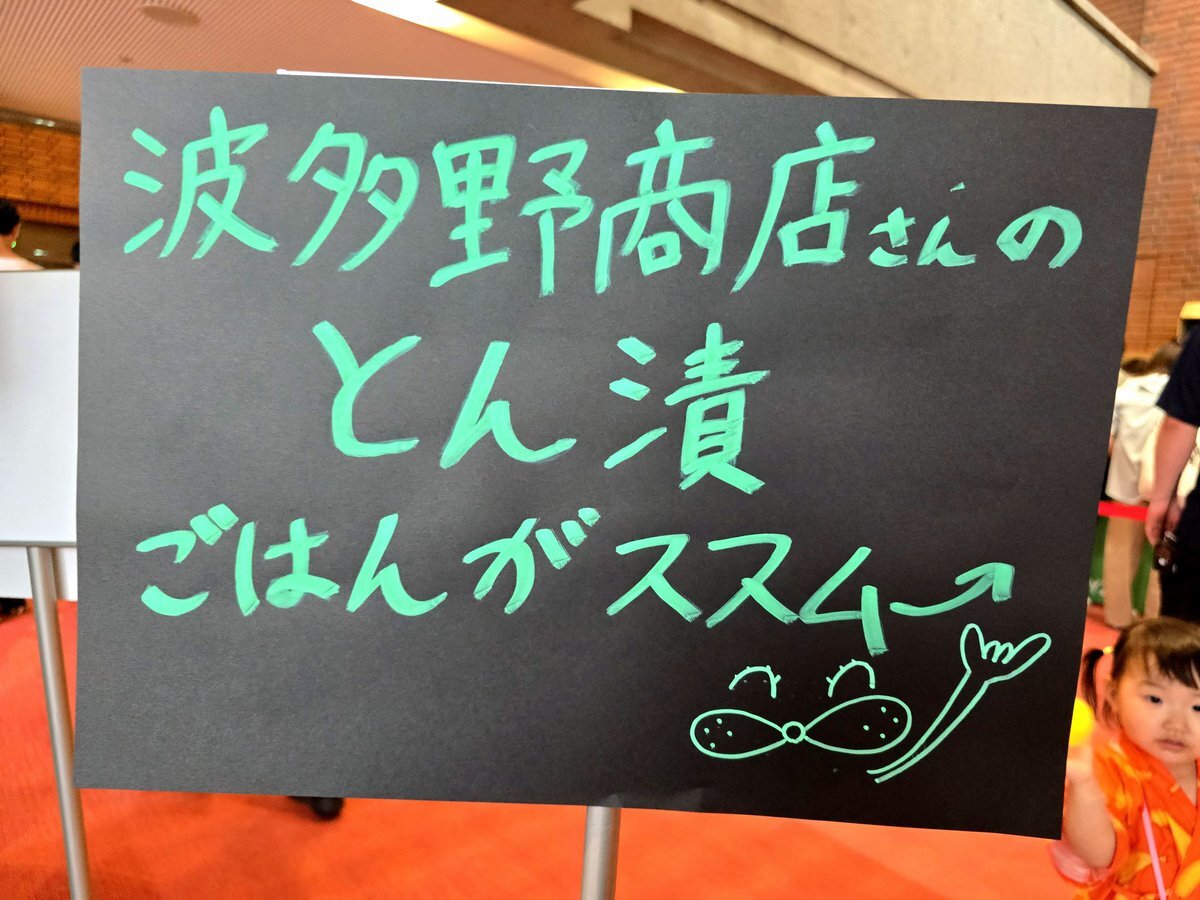 波多野商店さんの
とん漬
ごはんがススム